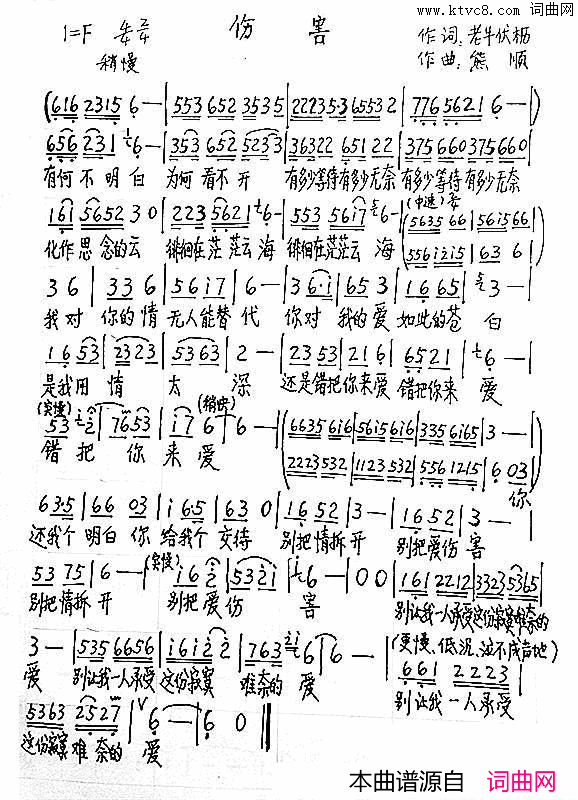 www.ktvc8.com 词曲网
1=F
伤 害
作词:老牛伏枥
稍慢
作曲:熊 顺
(616 2315 6 — | 553 652 3535 | 22235·3 65532 | 776 5621 6 — |)
656 231 6 — | 353 652 5233 | 36322 651 22 | 375 660 375 660 |
有何不明白 为何看不开 有多少等待有多少无奈 有多少等待有多少无奈
(中速)
161 5652 3 0 | 223 5621 6 — | 553 5617 6 — | 5635 66 | 561566 |
5561215 | 63 6 |
化作思念的云 徘徊在茫茫云海 徘徊在茫茫云海
3 6 | 33 6 | 5617 | 6 — | 3 6·1 | 65 3 | 16 65 | 3 — |
我对你的情无人能替代 你对我的爱如此的苍白
16 53 | 2323 | 53 63 | 2 — | 23 53 | 21 6 | 6521 | 6 — |
是我用情太深 还是错把你来爱错把你来爱
(突慢)
(稍快)
53 2 | 7653 | 17 6 | 6 — | 6635 616 | 5615 616 | 335 6165 | 3 — |
2223532 | 1123 532 | 556 1215 | 6 03 |
错把你来爱 你
63·5 | 66 03 | 1 6·5 | 63 0 | 16 52 | 3 — | 16 52 | 3 — |
还我个明白你给我个交待 别把情拆开 别把爱伤害
(突慢)
53 75 | 6 — | 16 2 | 5321 | 6 — | 0 0 | 161 2212 | 3323 5365 |
别把情拆开 别把爱伤害 别让我一人承受这份寂寞难奈的
3 — | 535 6656 | 1612 2 | 763 6 | 6 — |
(更慢、低沉、泣不成声地)
661 2223 |
爱 别让我一人承受这份寂寞难奈的爱
别让我一人承受
5363 2527 | 6 — | 6 0 ‖
这份寂寞难奈的爱
本曲谱源自 词曲网